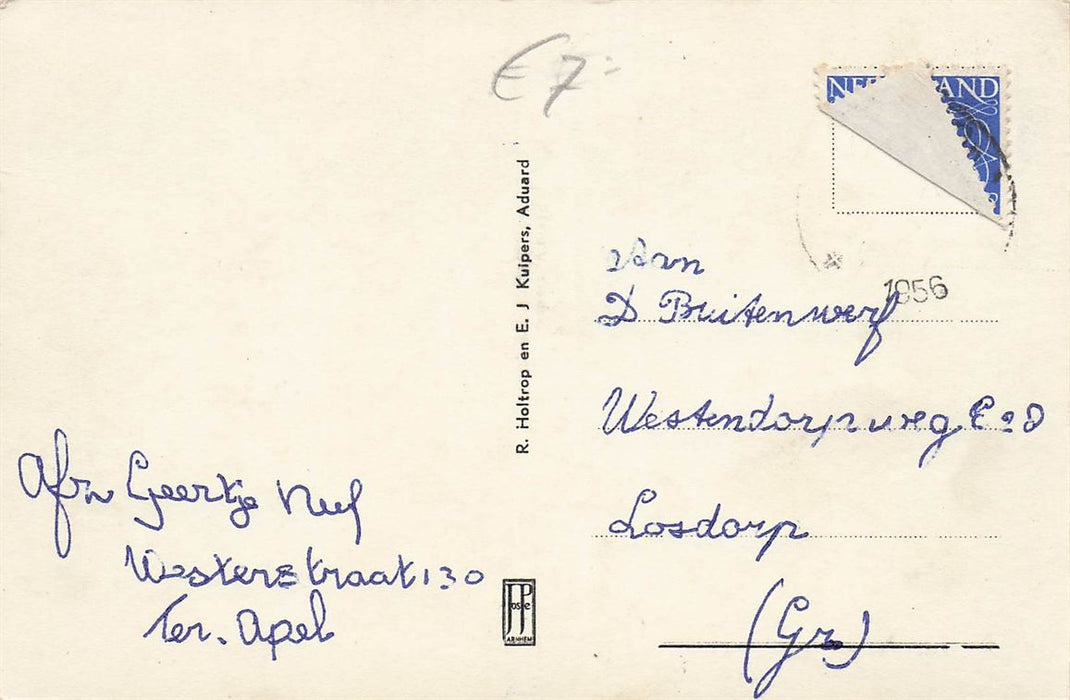 € 7=
AND
1956
R. Holtrop en E. J Kuipers, Aduard
Aan
D Buitenwerf
Westendorpweg E 20
Losdorp
(Gr)
Afz Geertje Neef
Westerstraat 130
Ter. Apel
JosPé
ARNHEM